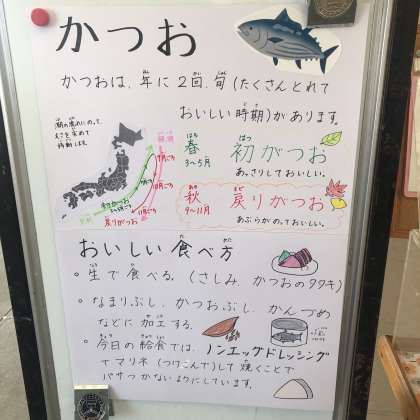 かつお
かつおは、年に2回、旬(たくさんとれて
おいしい時期)があります。
潮の流れにのって、
えさを求めて
移動します。
春 初がつお
3~5月 あっさりしておいしい。
秋 戻りがつお
9~11月 あぶらがのっておいしい。
初がつお
戻りがつお
おいしい食べ方
○生で食べる。(さしみ、かつおのタタキ)
○なまりぶし、かつおぶし、かんづめ
などに加工する。
○今日の給食では、ノンエッグドレッシング
でマリネ(つけこんで)して焼くことで
パサつかないようにしています。